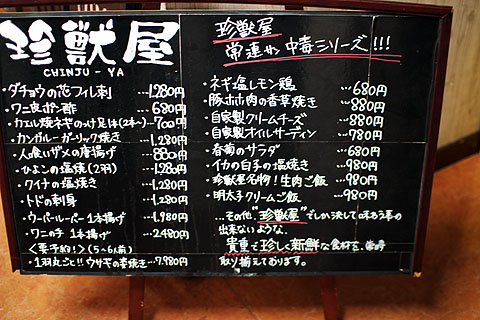 珍獣屋
CHINJU-YA
・ダチョウの花フィレ刺 …1,280円
・ワニ皮ポン酢 … 680円
・カエル焼ネギのっけ足1本(2本~)…700円
・カンガルーガーリック焼き …1,280円
・人喰いザメの唐揚げ … 880円
・ひよこの塩焼(2羽) …1,280円
・ワイナの塩焼き …1,280円
・トドの刺身 …1,280円
・ウーパールーパー1本揚げ …1,980円
・ワニの手 1本揚げ …2,480円
<要予約!>(5~6人前)
・1羽丸ごと!!ウサギの姿焼き…7,980円
珍獣屋
常連サン中毒シリーズ!!!
・ネギ塩レモン鶏 …680円
・豚ホホ肉の香草焼き …880円
・自家製クリームチーズ …880円
・自家製オイルサーディン …780円
・春菊のサラダ …680円
・イカの白子の塩焼き …980円
・珍獣屋名物!生肉ご飯 …980円
・明太子クリームご飯 …980円
…その他、"珍獣屋"でしか決して味わう事の
出来ないような、
貴重で珍しく新鮮な食材を、常時
取り揃えております。